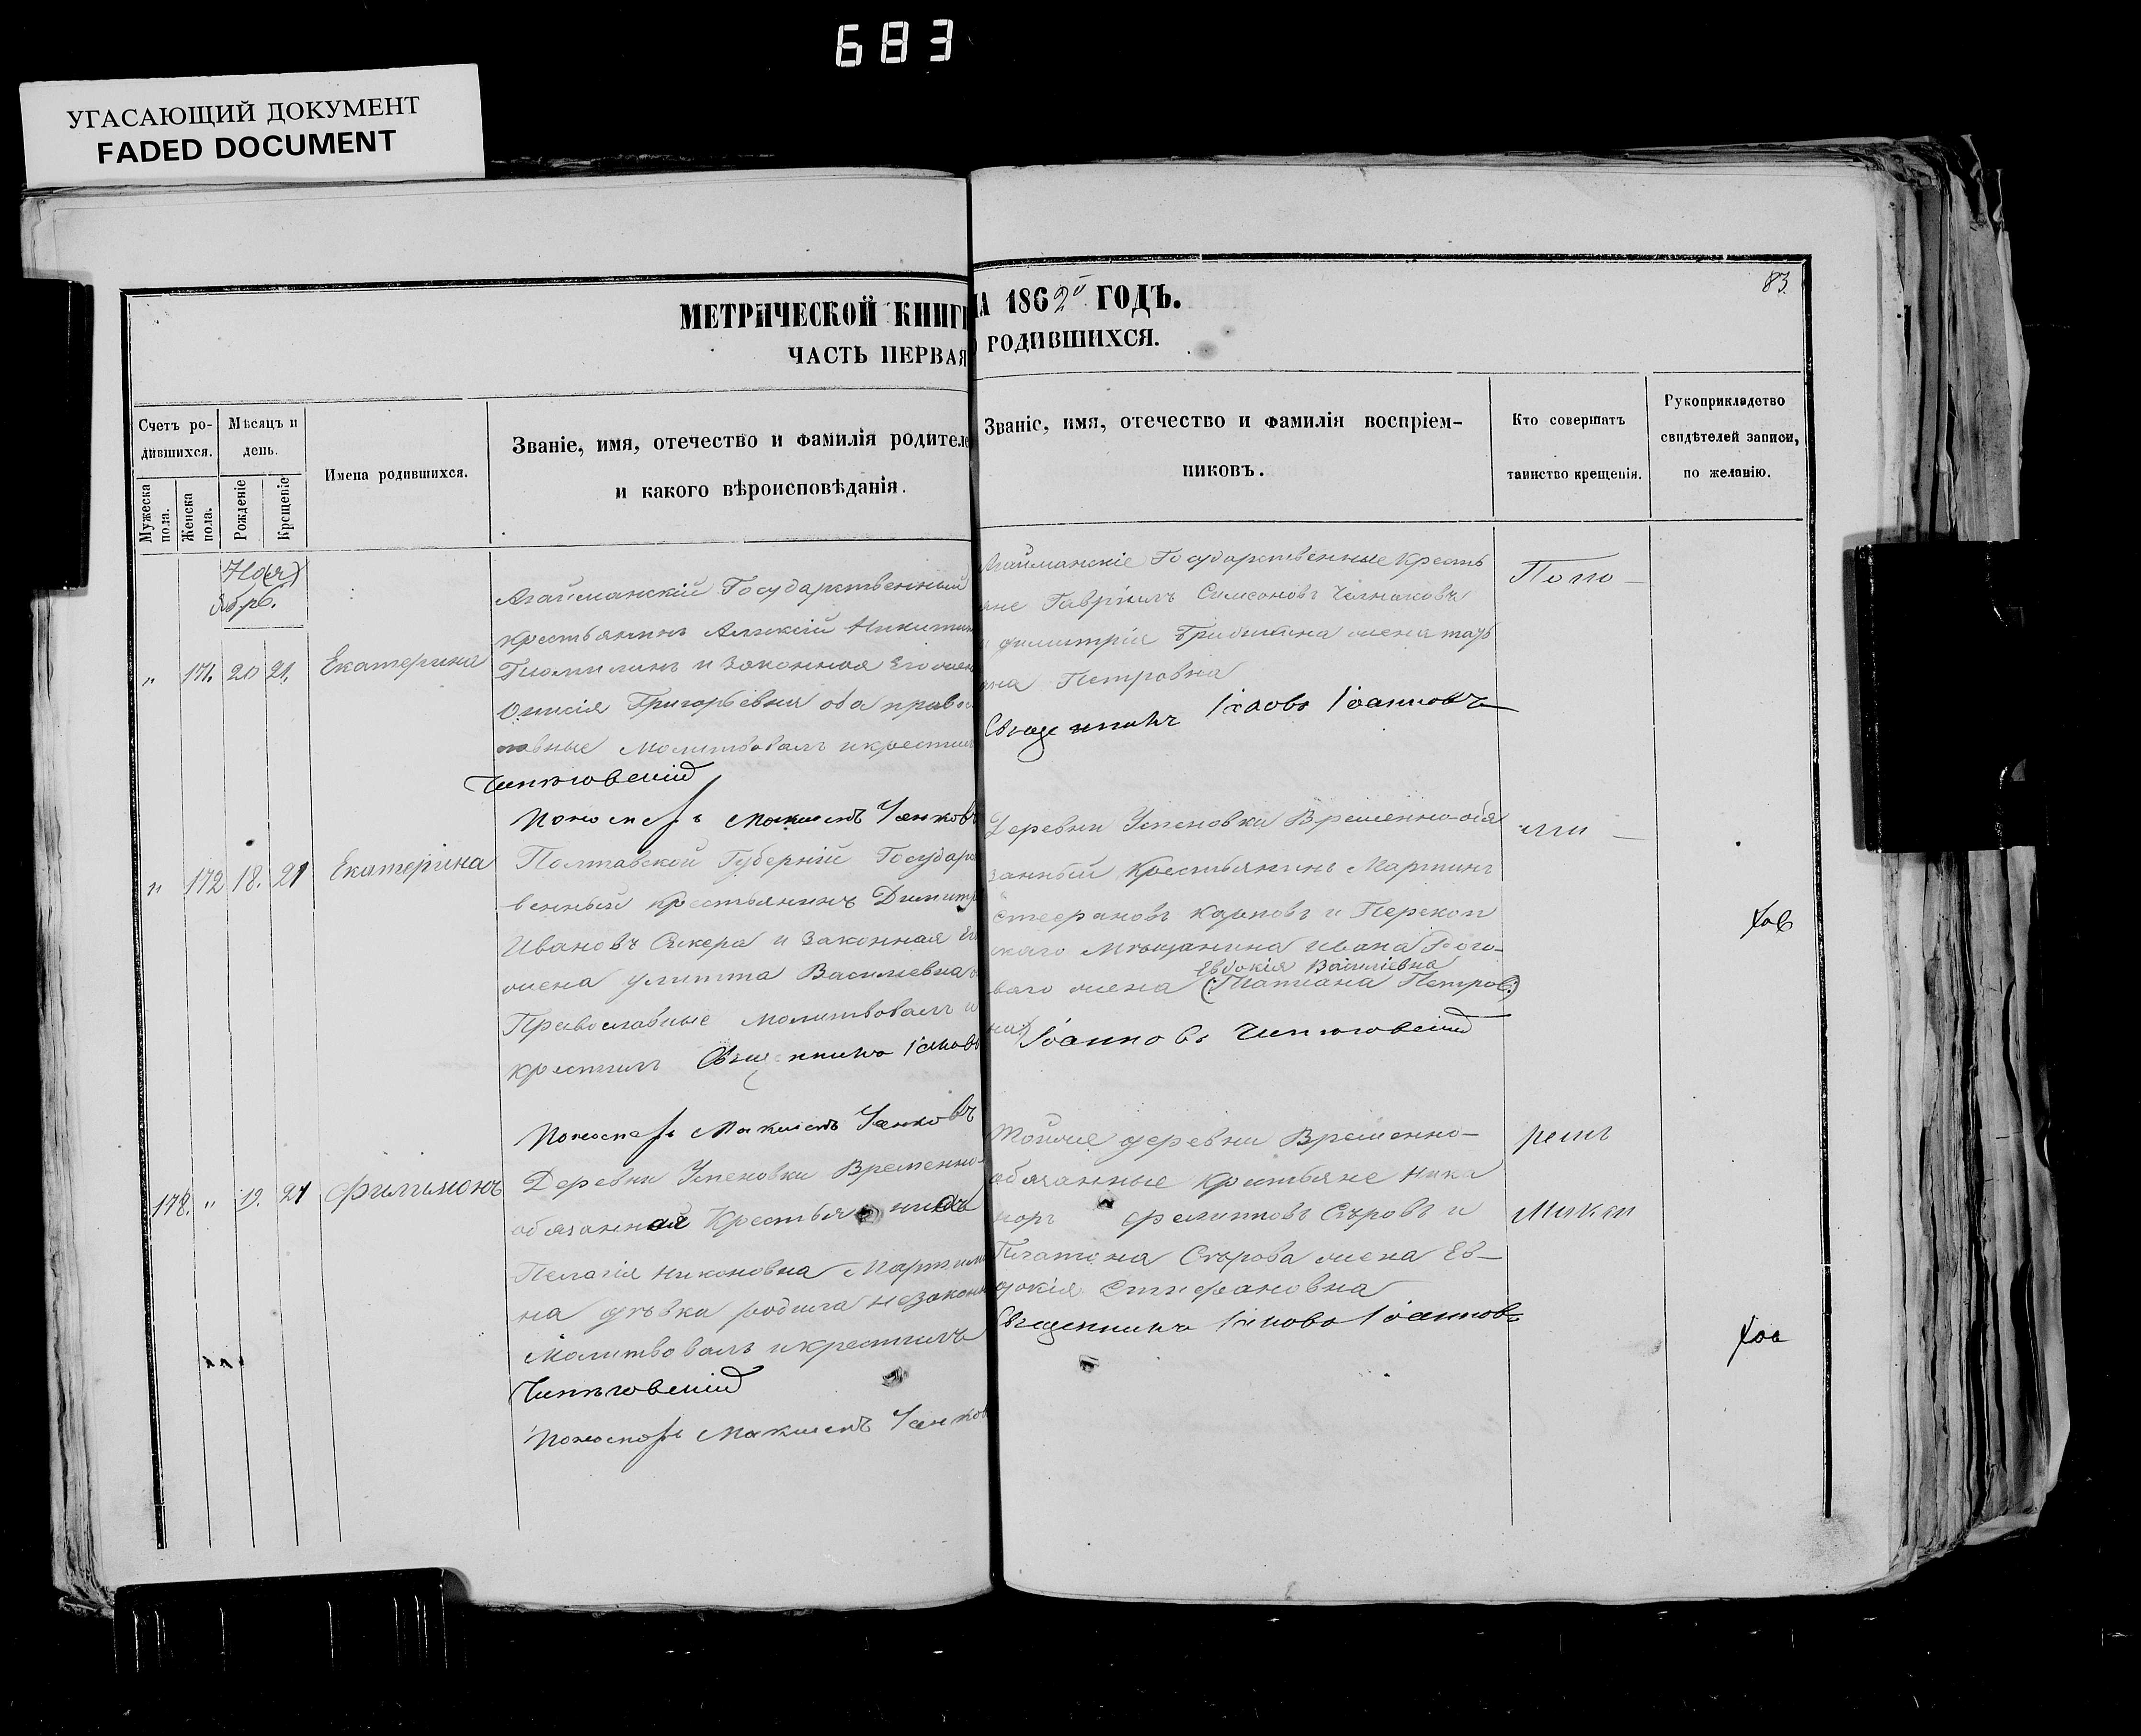 683
УГАСАЮЩИЙ ДОКУМЕНТ
FADED DOCUMENT
83.
МЕТРИЧЕСКОЙ КНИГИ
НА 1862й ГОДЪ.
ЧАСТЬ ПЕРВАЯ
РОДИВШИХСЯ.
Счетъ ро-
дившихся.
Мужеска пола.
Женска пола.
Мѣсяцъ и
день.
Рожденіе
Крещеніе
Имена родившихся.
Званіе, имя, отечество и фамилія родителе
и какого вѣроисповѣданія.
Званіе, имя, отечество и фамилія воспріем-
никовъ.
Кто совершатъ
таинство крещенія.
Рукоприкладство
свидѣтелей записи,
по желанію.
Ноя)
ября.
„ 171. 20 21. Екатерина
Агайманскій Государственный
крестьянинъ Алексій Никитин
и законная Его жен
Григорьевна оба право
лавные Молитвовалъ и крестил
Агайманскіе Государственные кресть
яне Гавріилъ Симеоновъ
и Димитрія жена
Петровна
Священникъ Іаковъ Іоанновъ
Чепиговскій
Пономарь Максимъ Чанковъ
По по –
„ 172 18. 21 Екатерина
Полтавской Губерніи Государ
венный крестьянинъ Димитр
Ивановъ Секера и законная Ег
жена Улитта Василіевна о
Православные молитвовалъ и
крестилъ Священникъ Іаковъ
Деревни Успеновки Временно-обя
занный Крестьянинъ Мартинъ
Стефановъ Карповъ и Перекоп
скаго Мѣщанина Ивана Рого-
Евдокія Василіевна
ваго жена (Татіана Петров:)
на) Іоанновъ Чепиговскій
Пономарь Максимъ Чанковъ
173. „ 19. 21 Филимонъ
Деревни Успеновки Временно-
обязанная Крестьянка
Пелагія Никоновна Мартин
на дѣвка родила незаконн
Молитвовалъ и крестилъ
Тойже деревни Временно-
обязанные крестьяне Ника
норъ Филипповъ Сѣровъ и
Платона Сѣрова жена Ев-
докія Стефановна
Священникъ Іаковъ Іоанновъ
Чепиговскій
Пономарь Максимъ Чанков